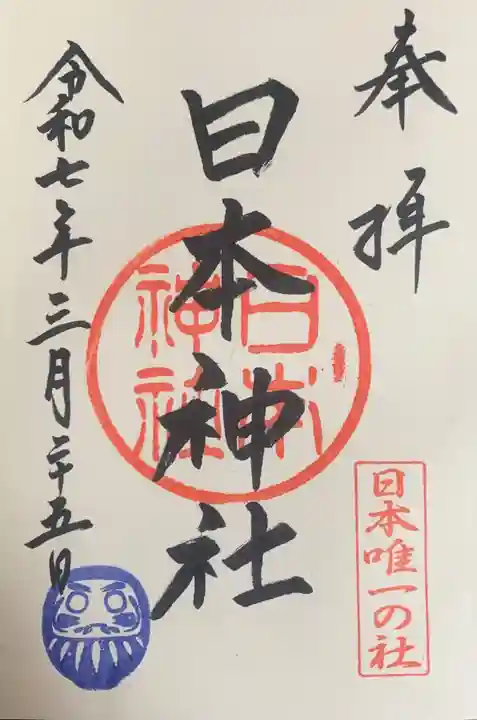 奉拝
日本唯一の社
日本神社
日本
神社
令和七年三月二十五日